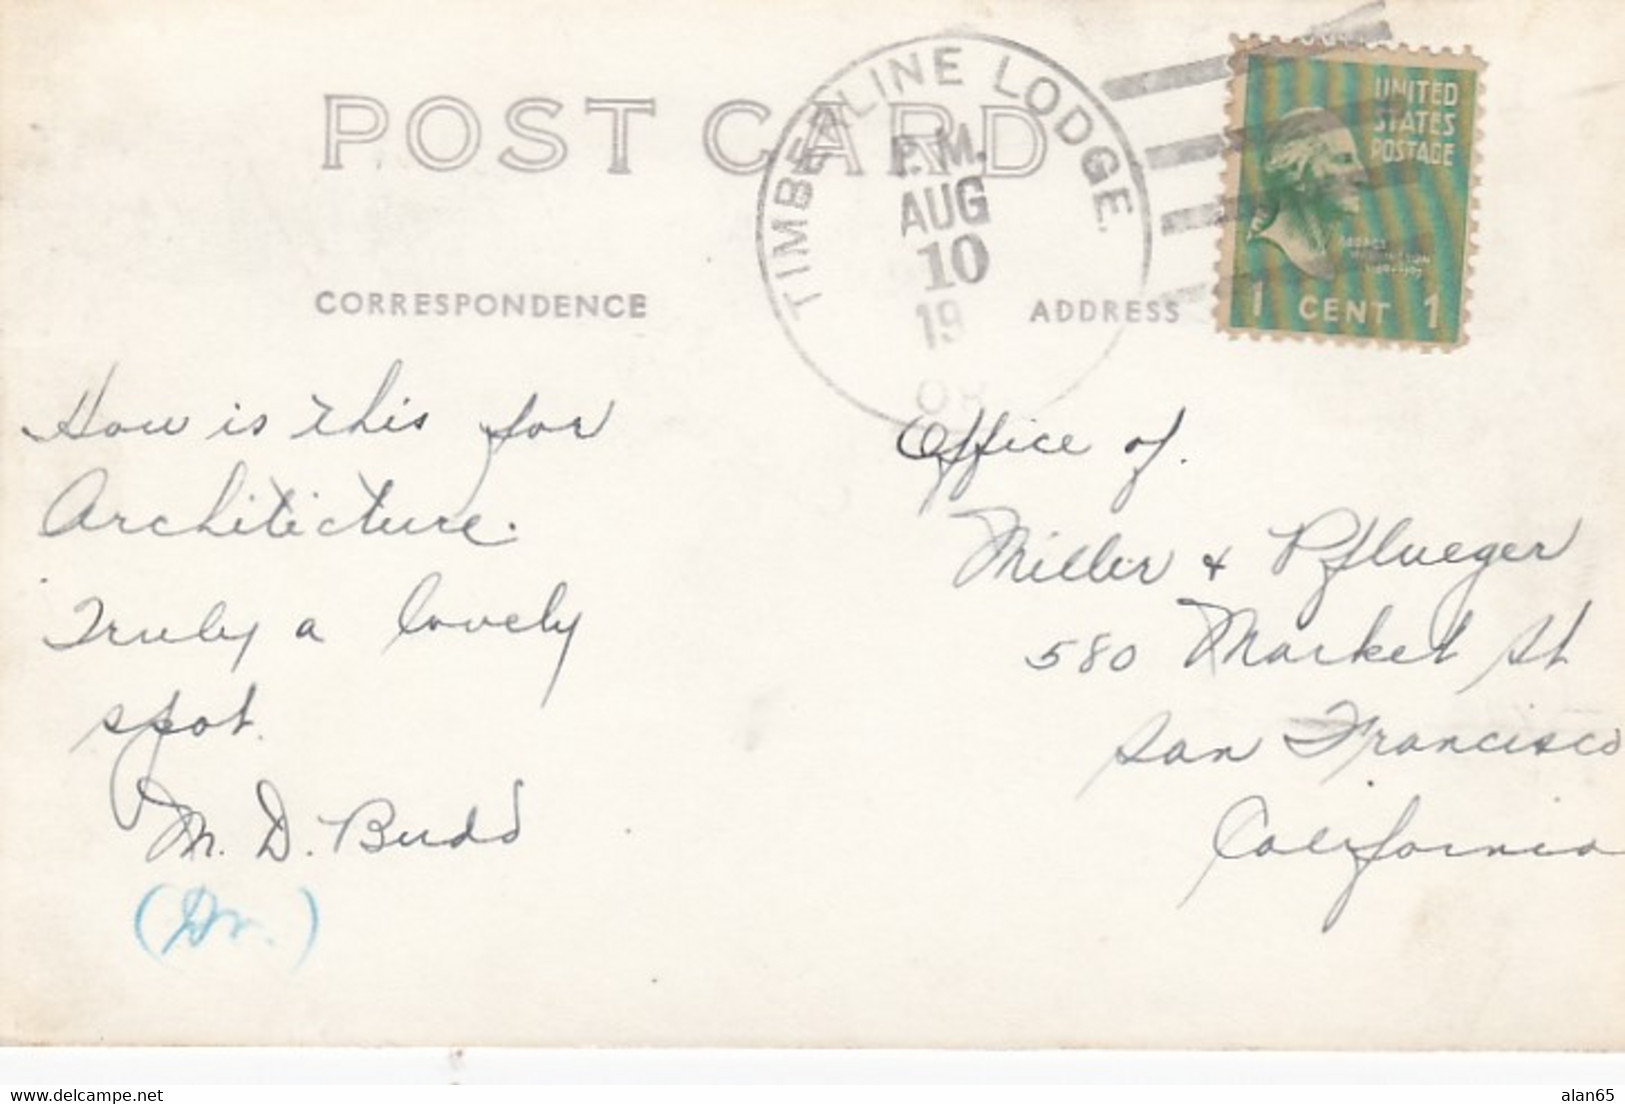 POST CARD
TIMBERLINE LODGE.
P.M.
AUG
10
19
UNITED
STATES
POSTAGE
1 CENT 1
CORRESPONDENCE
ADDRESS
How is this for
Architicture.
Truly a lovely
spot.
M. D. Budd
(Dr.)
Office of.
Miller & Pflueger
580 Market St
San Francisco
California
delcampe.net
alan65